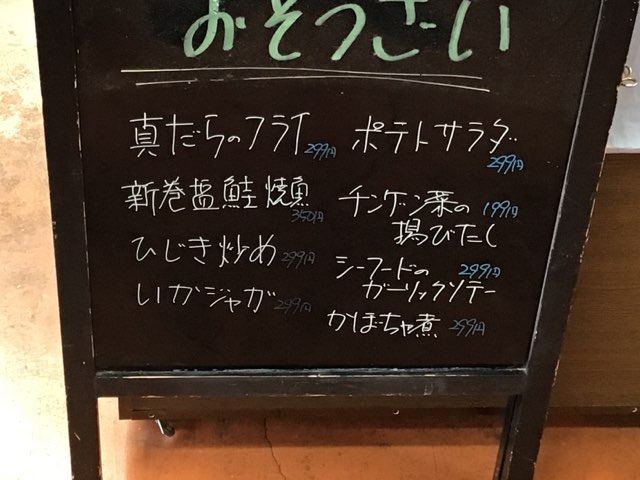 おそうざい
真だらのフライ 299円
新巻塩鮭焼魚 350円
ひじき炒め 299円
いかジャガ 299円
ポテトサラダ 299円
チンゲン菜の 199円
揚びたし
シーフードの 299円
ガーリックソテー
かぼちゃ煮 299円